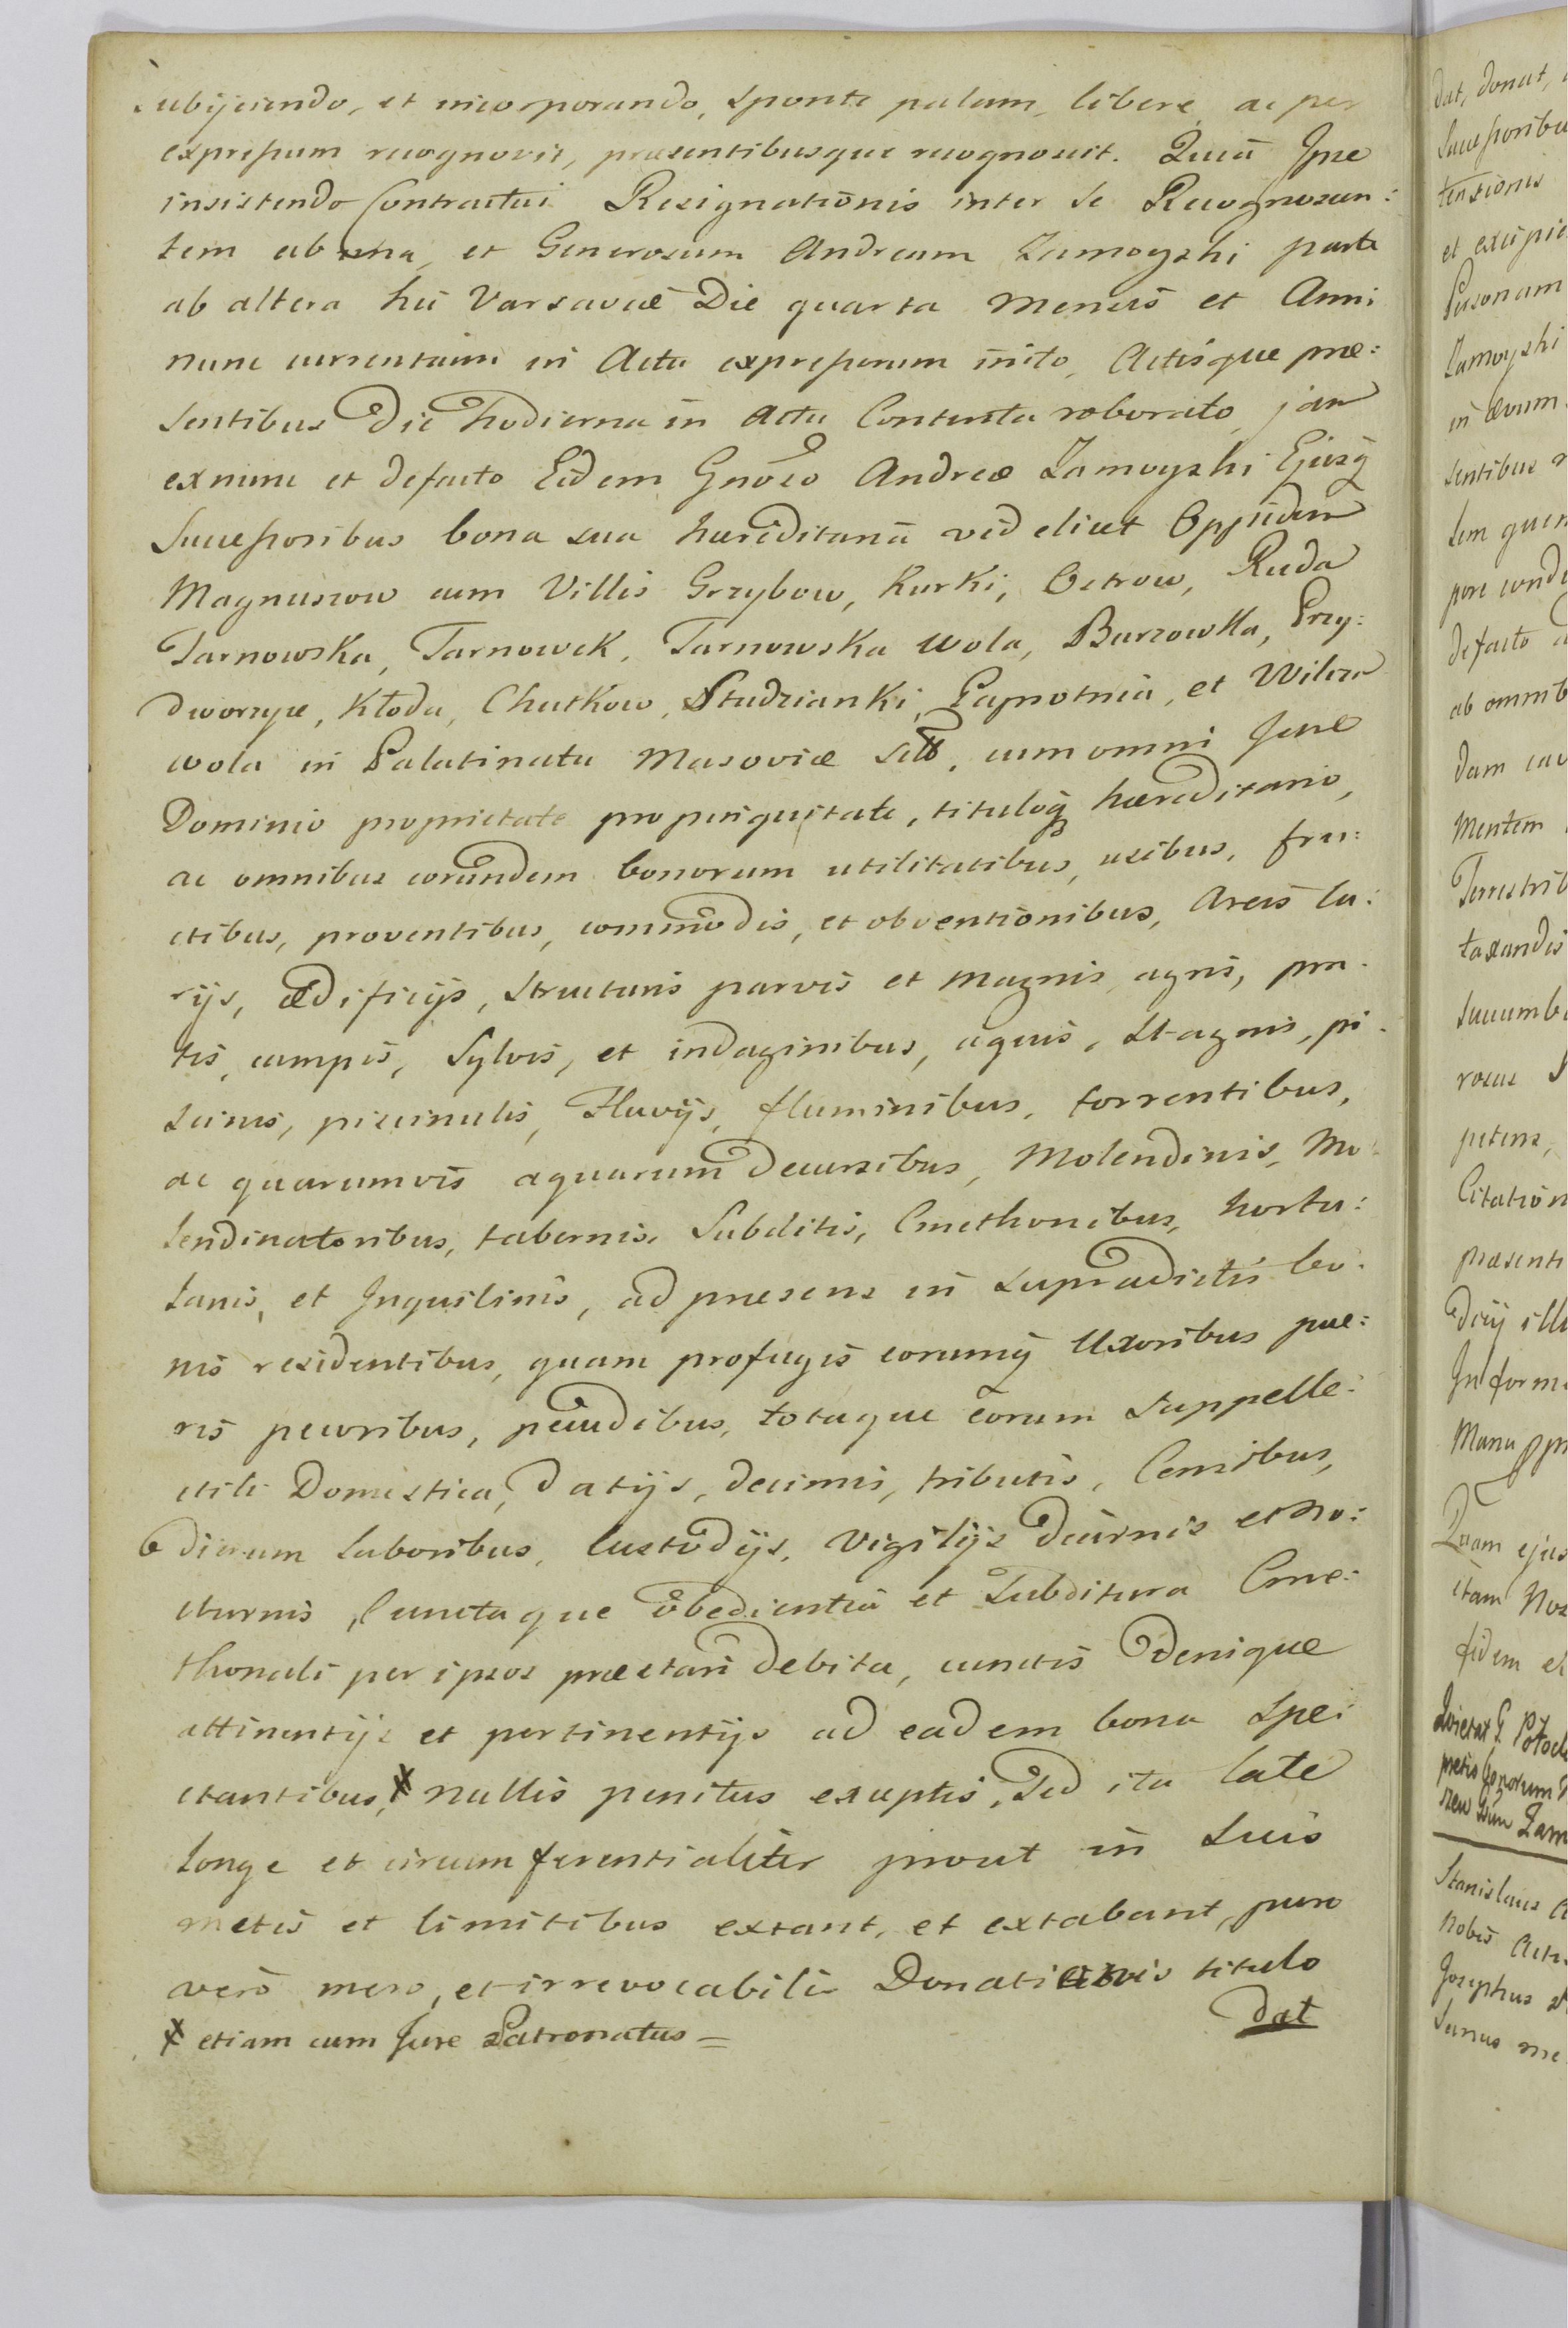 subijciendo, et incorporando, sponte palam, libere, ac per
expressum recognovit, praesentibusque recognoscit. Quia Ipse
insistendo Contractui Resignationis inter se Recognoscen:
tem ab una, et Generosum Andream Zamoyski parte
ab altera hic Varsaviæ Die quarta Mensis et Anni
nunc currentium in Actu expressorum inito, Actisque præ:
sentibus Die hodierna in Actu Contenta roborato, jam
ex nunc et defacto Eidem Gnõso Andreæ Zamoyski Ejusq̃
Successoribus bona sua hæreditaria videlicet Oppidum
Magnuszow cum Villis Grzybow, Kurki, Ostrow, Ruda
Tarnowska, Tarnowek, Tarnowska wola, Burzowka, Przy:
dworzyce, Kłoda, Chutkow, Studzianki, Paprotnia, et Wilcza
wola in Palatinatu Masoviæ sita, cum omni Jure
Dominio proprietate propinquitate, tituloq̃ hæreditario,
ac omnibus eorundem bonorum utilitatibus, usibus, fru:
ctibus, proventibus, commodis, et obventionibus, Areis la:
rijs, ædificijs, structuris parvis et magnis, agris, pra:
tis, campis, Sylvis, et indaginibus, aquis, stagnis, pi:
scinis, piscinulis, Fluvijs, fluminibus, torrentibus,
ac quarumvis aquarum Decursibus, Molendinis, Mo:
lendinatoribus, tabernis, Subditis, Cmethonibus, hortu:
lanis, et Inquilinis, ad praesens in supradictis bo:
nis residentibus, quam profugis eorumq̃ Uxoribus pue:
ris pecoribus, pecudibus, totaque eorum suppelle:
ctili Domestica, Datijs, decimis, tributis, Censibus,
Dierum laboribus, Custodijs, Vigilijs Diurnis et No:
cturnis, Cunctaque obedientia et Subditura Cme:
thonali per ipsos præstari Debita, cunctis Denique
attinentijs et pertinentijs ad eadem bona Spe:
ctantibus, ⚹ nullis penitus exceptis, Sed ita late
longe et circumferentialiter prout in Suis
metis et limitibus extant, et extabant, puro
vero mero, et irrevocabili Donationis titulo
dat
⚹ etiam cum Jure Patronatus =
dat, donat,
Successoribu
tensionis
et excipie
Personam
Zamoyski
in ævum
sentibus
lem quem
pore cond
defacto
ab omnib
dam cau
Mentem
Terrestrib
taxandis
succumb
rosus
petens,
Citation
praesenti
Dicij illi
In forma
Manu ppr
Quam ejus
ctam Nos
fidem et
Quietat G. Potock
pretio bonorum
Zam
Stanislaus
Nobis Actis
Josephus
Sanus me